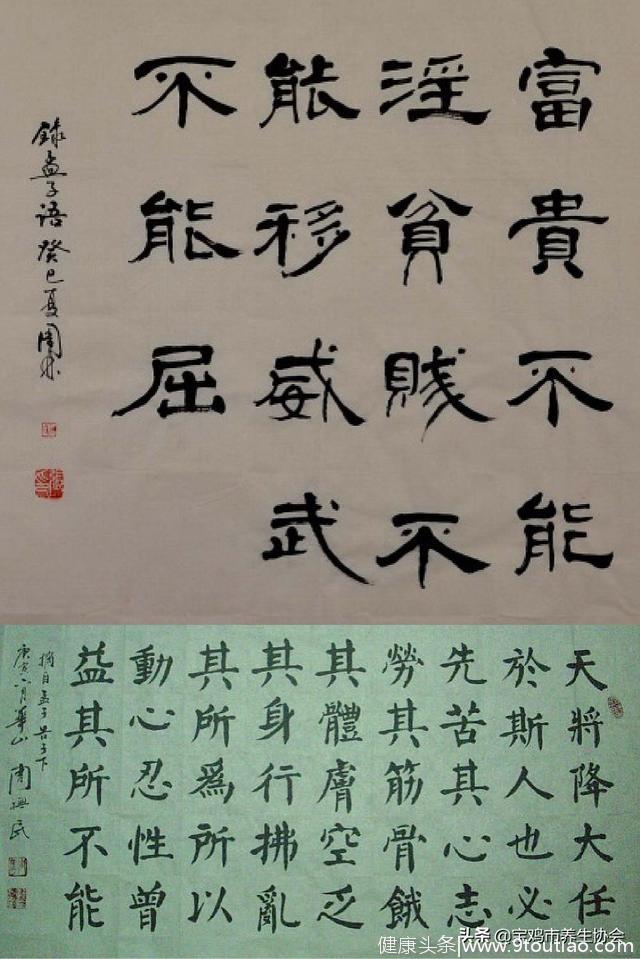 富貴不能
淫貧賤不
能移威武
不能屈
録孟子语癸巳夏周
天將降大任
於斯人也必
先苦其心志
勞其筋骨餓
其體膚空乏
其身行拂亂
其所爲所以
動心忍性曾
益其所不能
摘自孟子告子下
庚寅月華山周興民
头条 @宝鸡市养生协会
健康头条 www.9toutiao.com